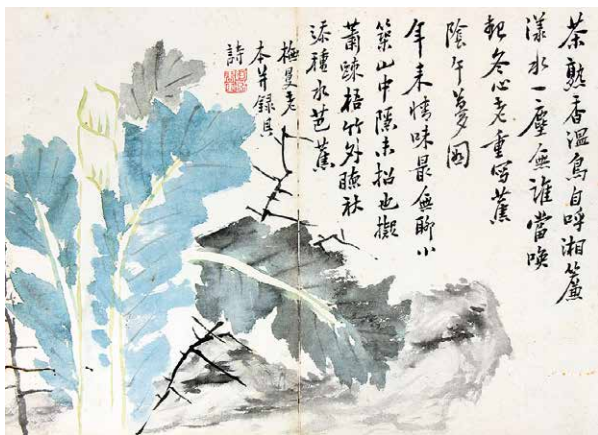 茶熟香溫鳥自呼湘簾
漾水一塵無誰當喚
起冬心老重寫蕉
陰午夢圖
年來情味最無聊小
築山中隱未招也擬
蕭疎梧竹外聽秋
添種水芭蕉
梅叟老
本并錄其
詩